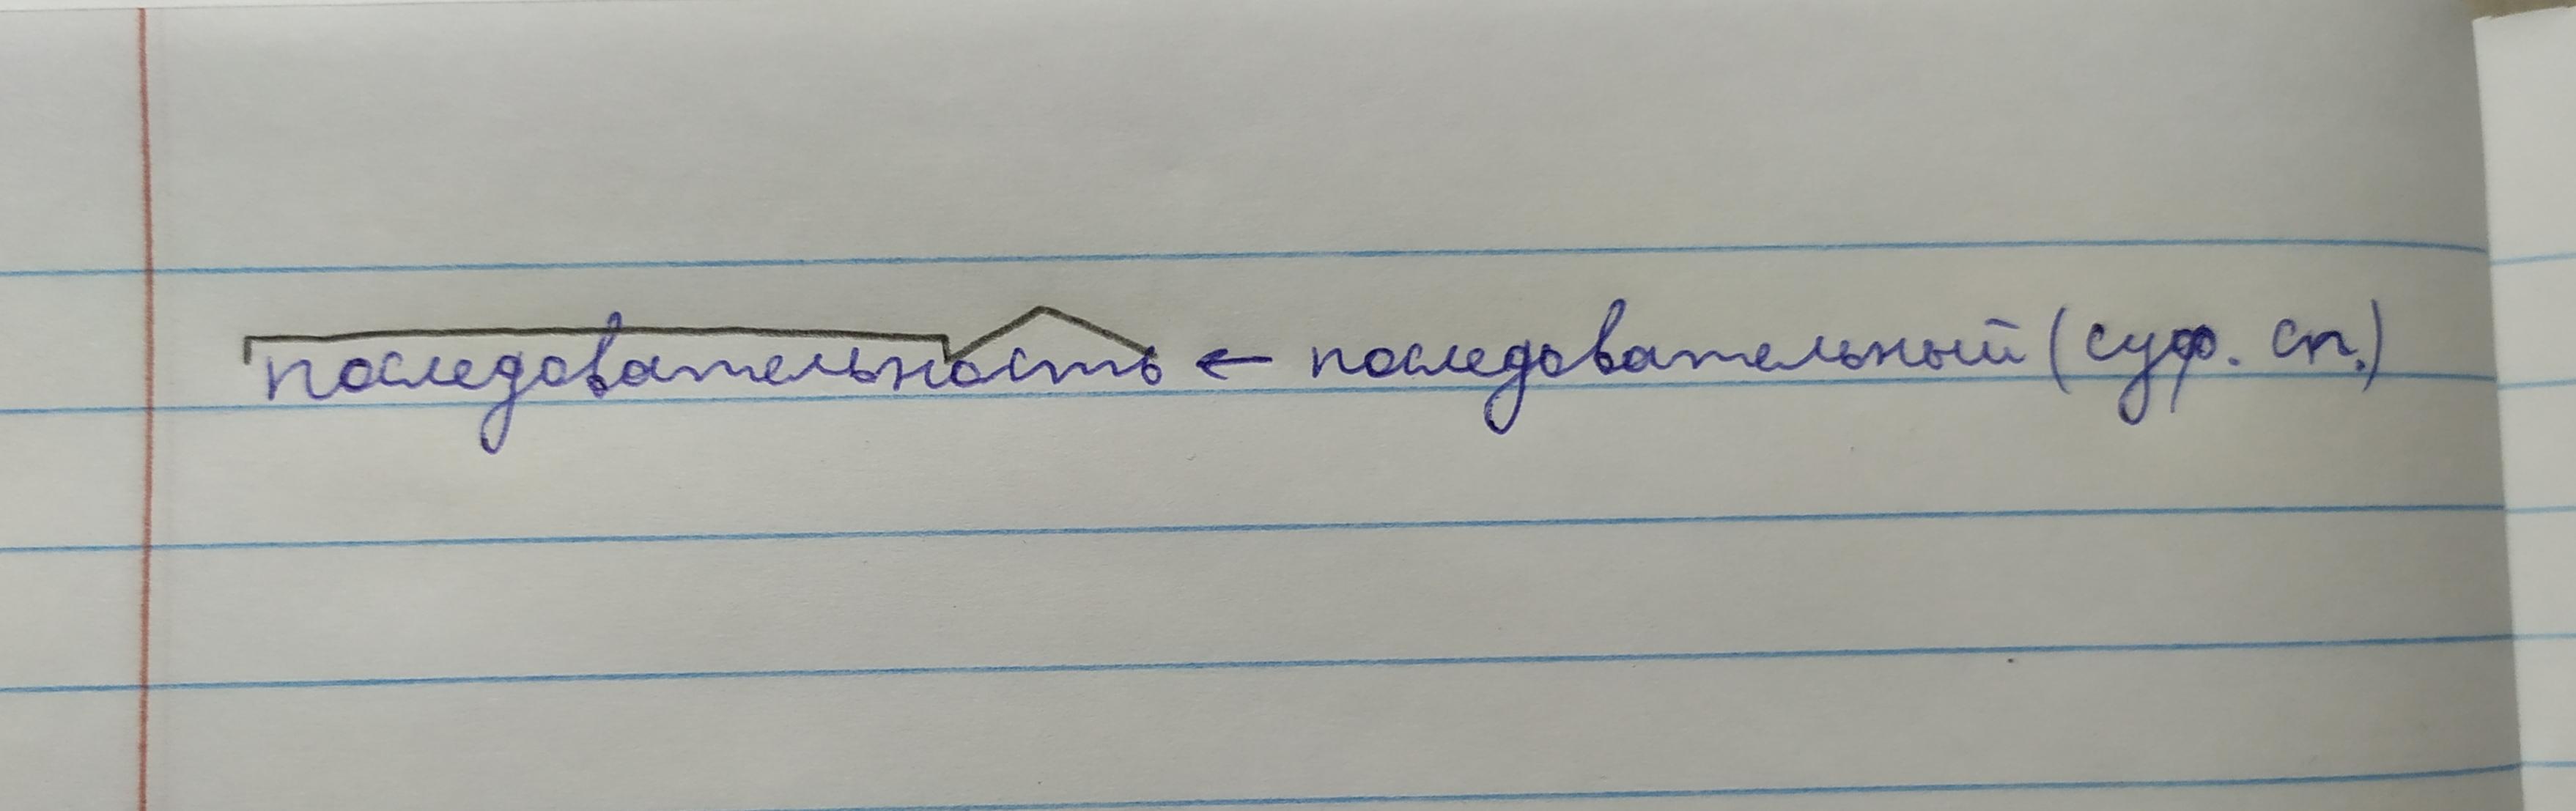 последовательность ← последовательный (суф. сп.)